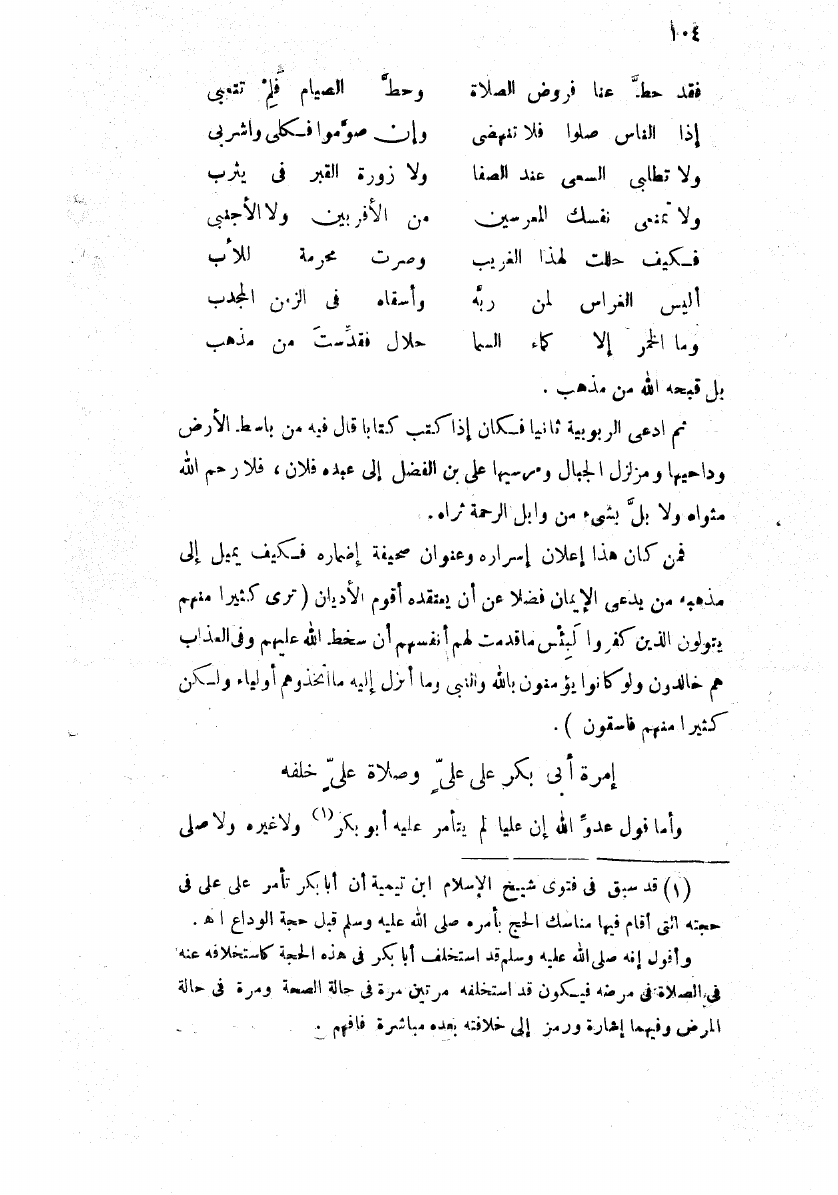 ١٠٤
فقد حطَّ عنا فروض الصلاة وحطَّ الصيام فَلِمْ تتعبى
إذا الناس صلوا فلا تنهضى وإن صوَّموا فكلى واشربى
ولا تطلبى السعى عند الصفا ولا زورة القبر فى يثرب
ولا تمنعى نفسك المعرسين من الأقربين ولا الأجنبى
فكيف حللت لهذا الغريب وصرت محرمة للأب
أليس الغراس لمن ربَّه وأسقاه فى الزمن المجدب
وما الخمر إلا كماء السما حلال فقدِّستَ من مذهب
بل قبحه الله من مذهب .
ثم ادعى الربوبية ثانيا فكان إذا كتب كتابا قال فيه من باسط الأرض
وداحيها ومزلزل الجبال ومرسيها على بن الفضل إلى عبده فلان ، فلا رحم الله
مثواه ولا بلَّ بشىء من وابل الرحمة ثراه .
فمن كان هذا إعلان إسراره وعنوان صحيفة إضماره فكيف يميل إلى
مذهبه من يدعى الإيمان فضلا عن أن يعتقده أقوم الأديان ( ترى كثيرا منهم
يتولون الذين كفروا لَبِئْس ماقدمت لهم أنفسهم أن سخط الله عليهم وفى العذاب
هم خالدون ولو كانوا يؤمنون بالله والنبى وما أنزل إليه ما اتخذوهم أولياء ولكن
كثيرا منهم فاسقون ) .
إمرة أبى بكر على علىّ وصلاة علىّ خلفه
وأما قول عدوِّ الله إن عليا لم يتأمر عليه أبو بكر (١) ولا غيره ولا صلى
(١) قد سبق فى فتوى شيخ الإسلام ابن تيمية أن أبا بكر تأمر على على فى
حجته التى أقام فيها مناسك الحج بأمره صلى الله عليه وسلم قبل حجة الوداع اهـ .
وأقول إنه صلى الله عليه وسلم قد استخلف أبا بكر فى هذه الحجة كاستخلافه عنه
فى الصلاة فى مرضه فيكون قد استخلفه مرتين مرة فى حالة الصحة ومرة فى حالة
المرض وفيهما إشارة ورمز إلى خلافته بعده مباشرة فافهم .